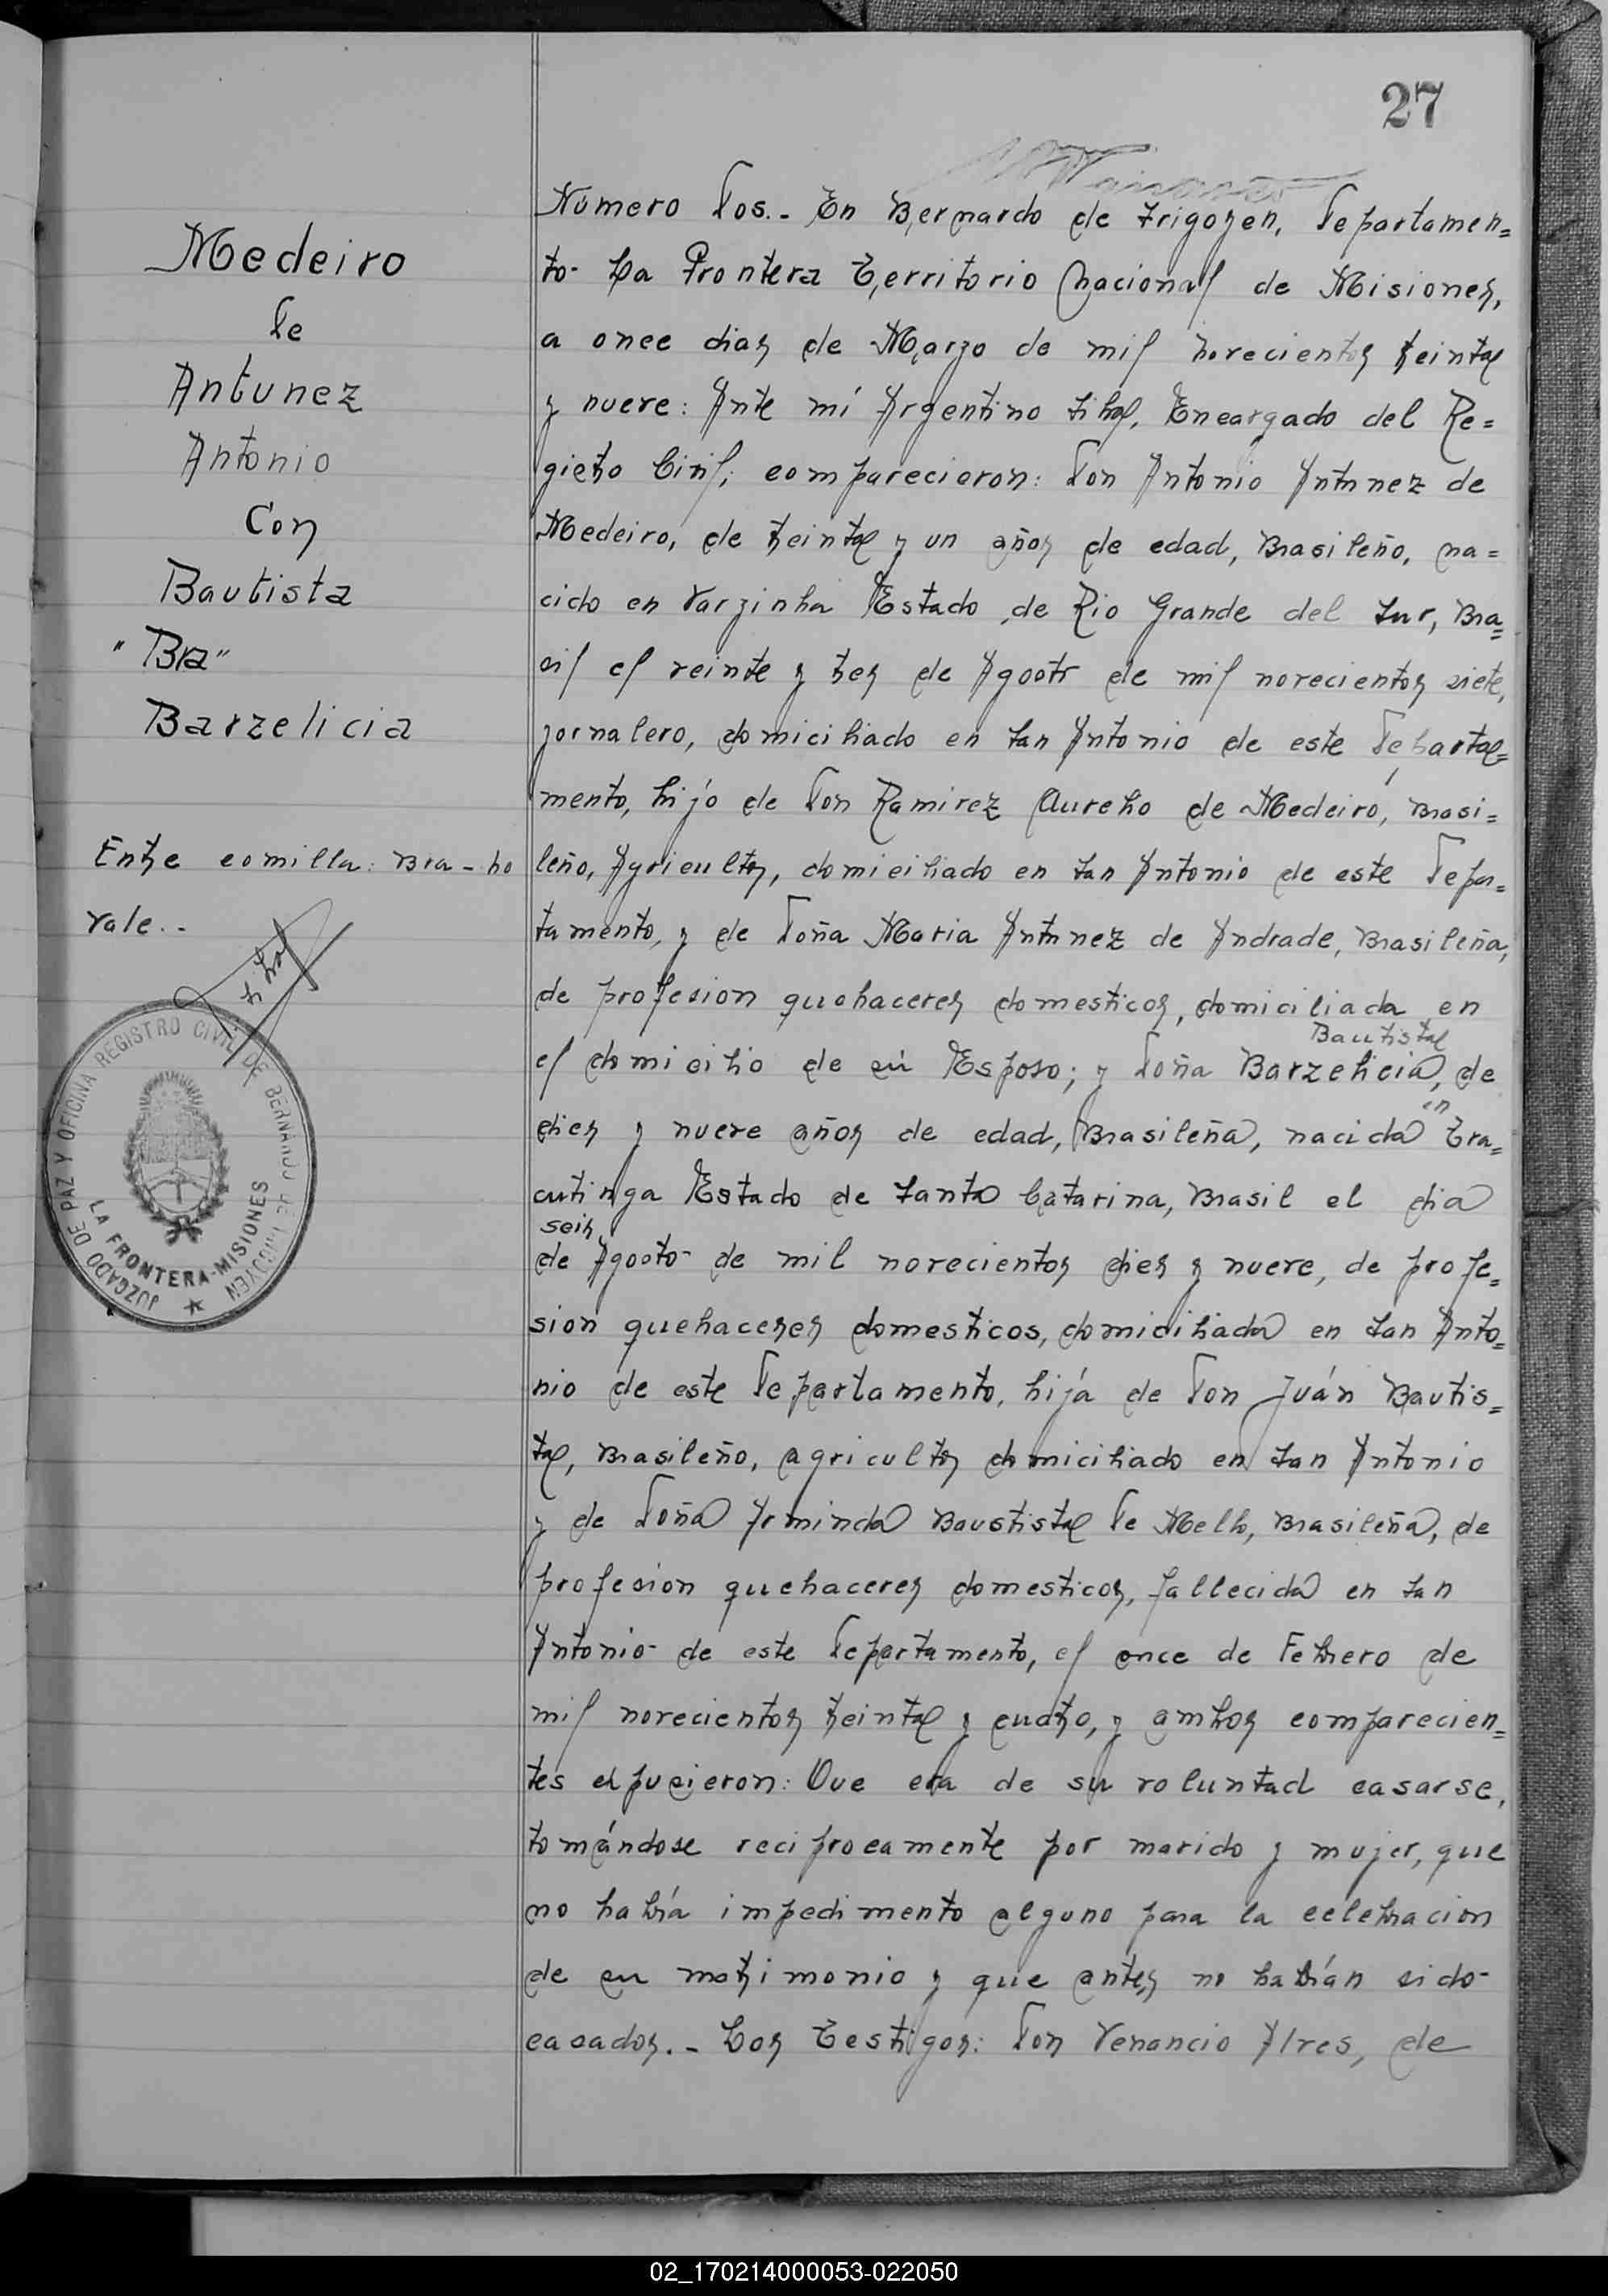 27
Medeiro
de
Antunez
Antonio
Con
Bautista
"Bra"
Barzelicia
Entre comilla: Bra - no
vale..
JUZGADO DE PAZ Y OFICINA REGISTRO CIVIL DE BERNARDO DE IRIGOYEN
LA FRONTERA-MISIONES
Número Dos.- En Bernardo de Irigoyen, Departamen=
to- La Frontera Territorio Nacional de Misiones,
a once dias de Marzo de mil novecientos treinta
y nueve: Ante mí Argentino Silva, Encargado del Re=
gistro Civil; comparecieron: Don Antonio Antunez de
Medeiro, de treinta y un años de edad, Brasileño, na=
cido en Varzinha Estado de Rio Grande del Sur, Bra=
sil el veinte y tres de Agosto de mil novecientos siete,
jornalero, domiciliado en San Antonio de este Departa=
mento, hijo de Don Ramirez Aurelio de Medeiro, Brasi=
leño, Agricultor, domiciliado en San Antonio de este Depar=
tamento, y de Doña Maria Antunez de Andrade, Brasileña,
de profesion quehaceres domesticos, domiciliada en
Bautista
el domicilio de su Esposo; y Doña Barzelicia, de
en
dies y nueve años de edad, Brasileña, nacida Era=
cutinga Estado de Santa Catarina, Brasil el dia
seis
de Agosto- de mil novecientos dies y nueve, de profe=
sion quehaceres domesticos, domiciliada en San Anto=
nio de este Departamento, hija de Don Juán Bautis=
ta, Brasileño, agricultor domiciliado en San Antonio
y de Doña Arminda Baustista De Mello, Brasileña, de
profesion quehaceres domesticos, fallecida en San
Antonio- de este Departamento, el once de Febrero de
mil novecientos treinta y cuatro, y ambos comparecien=
tes expusieron: Que era de su voluntad casarse,
tomándose reciprocamente por marido y mujer, que
no había impedimento alguno para la celebracion
de su matrimonio y que antes no habían sido-
casados.- Los Testigos: Don Venancio Alres, de
02_170214000053-022050